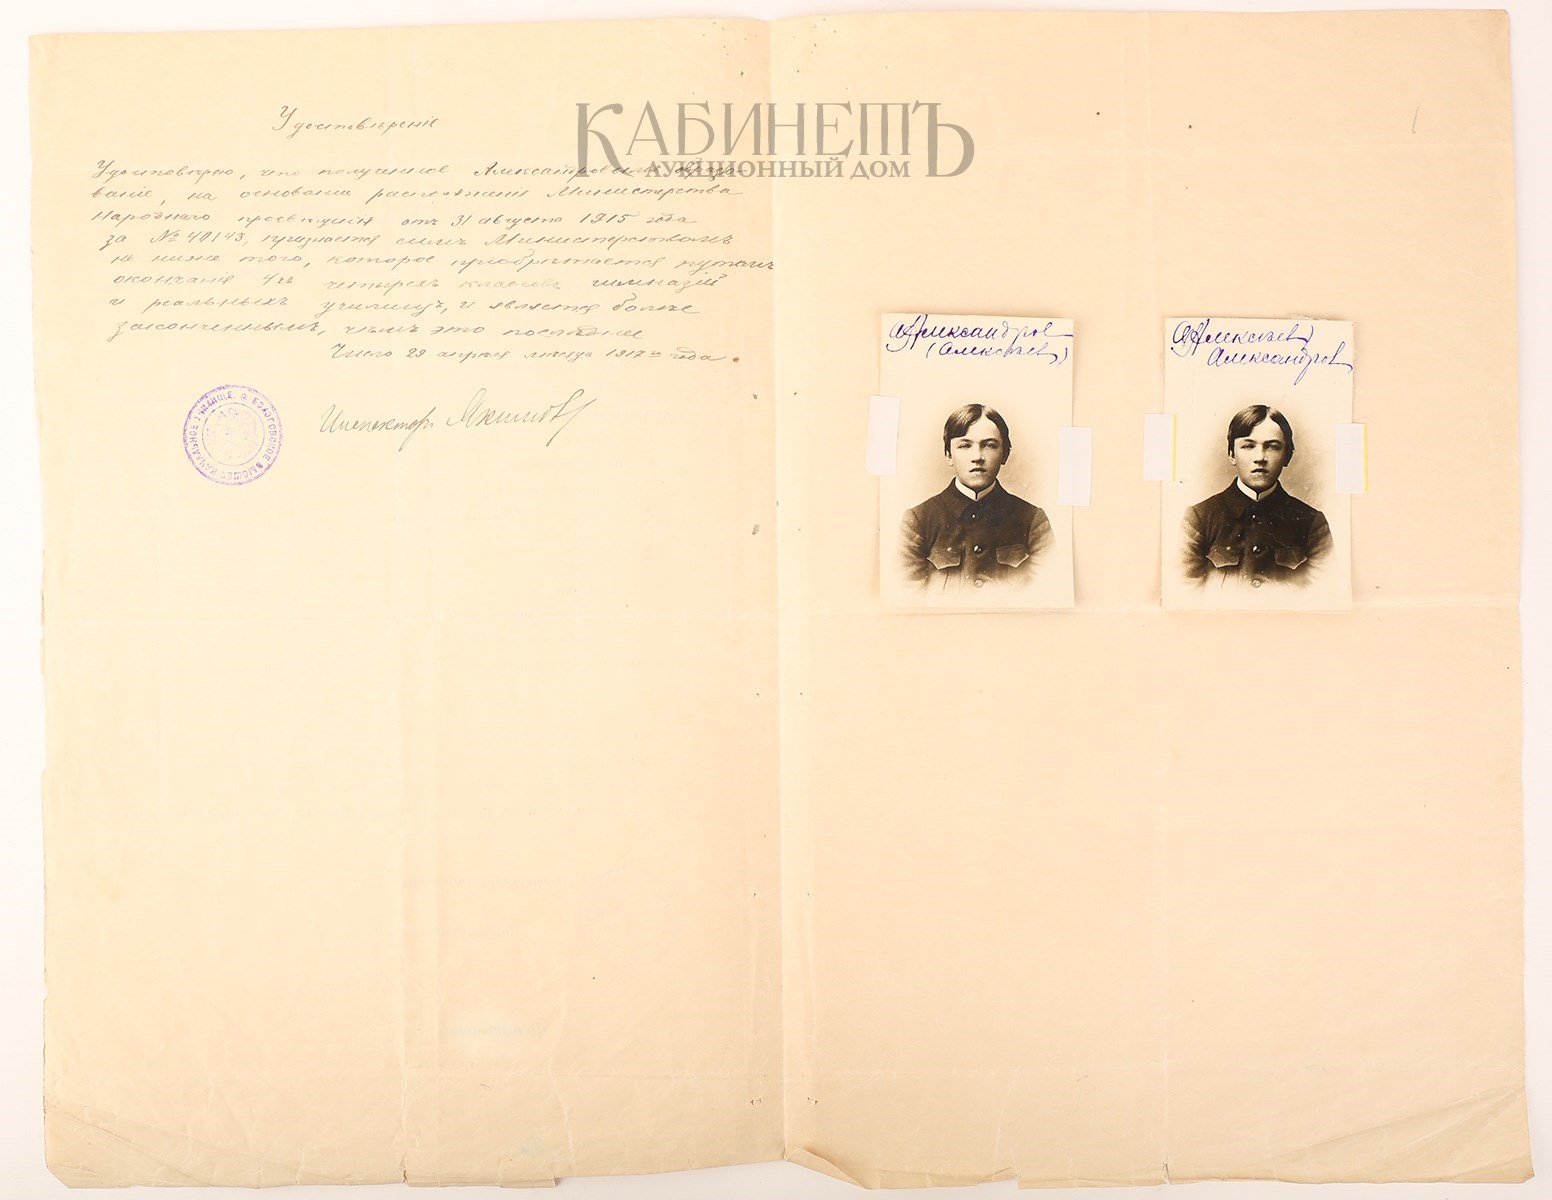 КАБИНЕТЪ
АУКЦИОННЫЙ ДОМ
Удостовѣреніе
Удостовѣряю, что полученное Александровымъ образо-
ваніе, на основаніи распоряженія Министерства
Народнаго просвѣщенія отъ 31 августа 1915 года
за № 40143, признается симъ Министерствомъ
не ниже того, которое пріобрѣтается путемъ
окончанія 4хъ четырех классовъ гимназій
и реальныхъ училищъ, и является болѣе
законченнымъ, чѣмъ это послѣднее
Число 29 апрѣля мѣсяца 1917 го года.
Инспекторъ Якимовъ
БОЛОГОВСКОЕ ВЫСШЕЕ НАЧАЛЬНОЕ УЧИЛИЩЕ
Александров
(Алексѣев)
Алексѣев
Александров